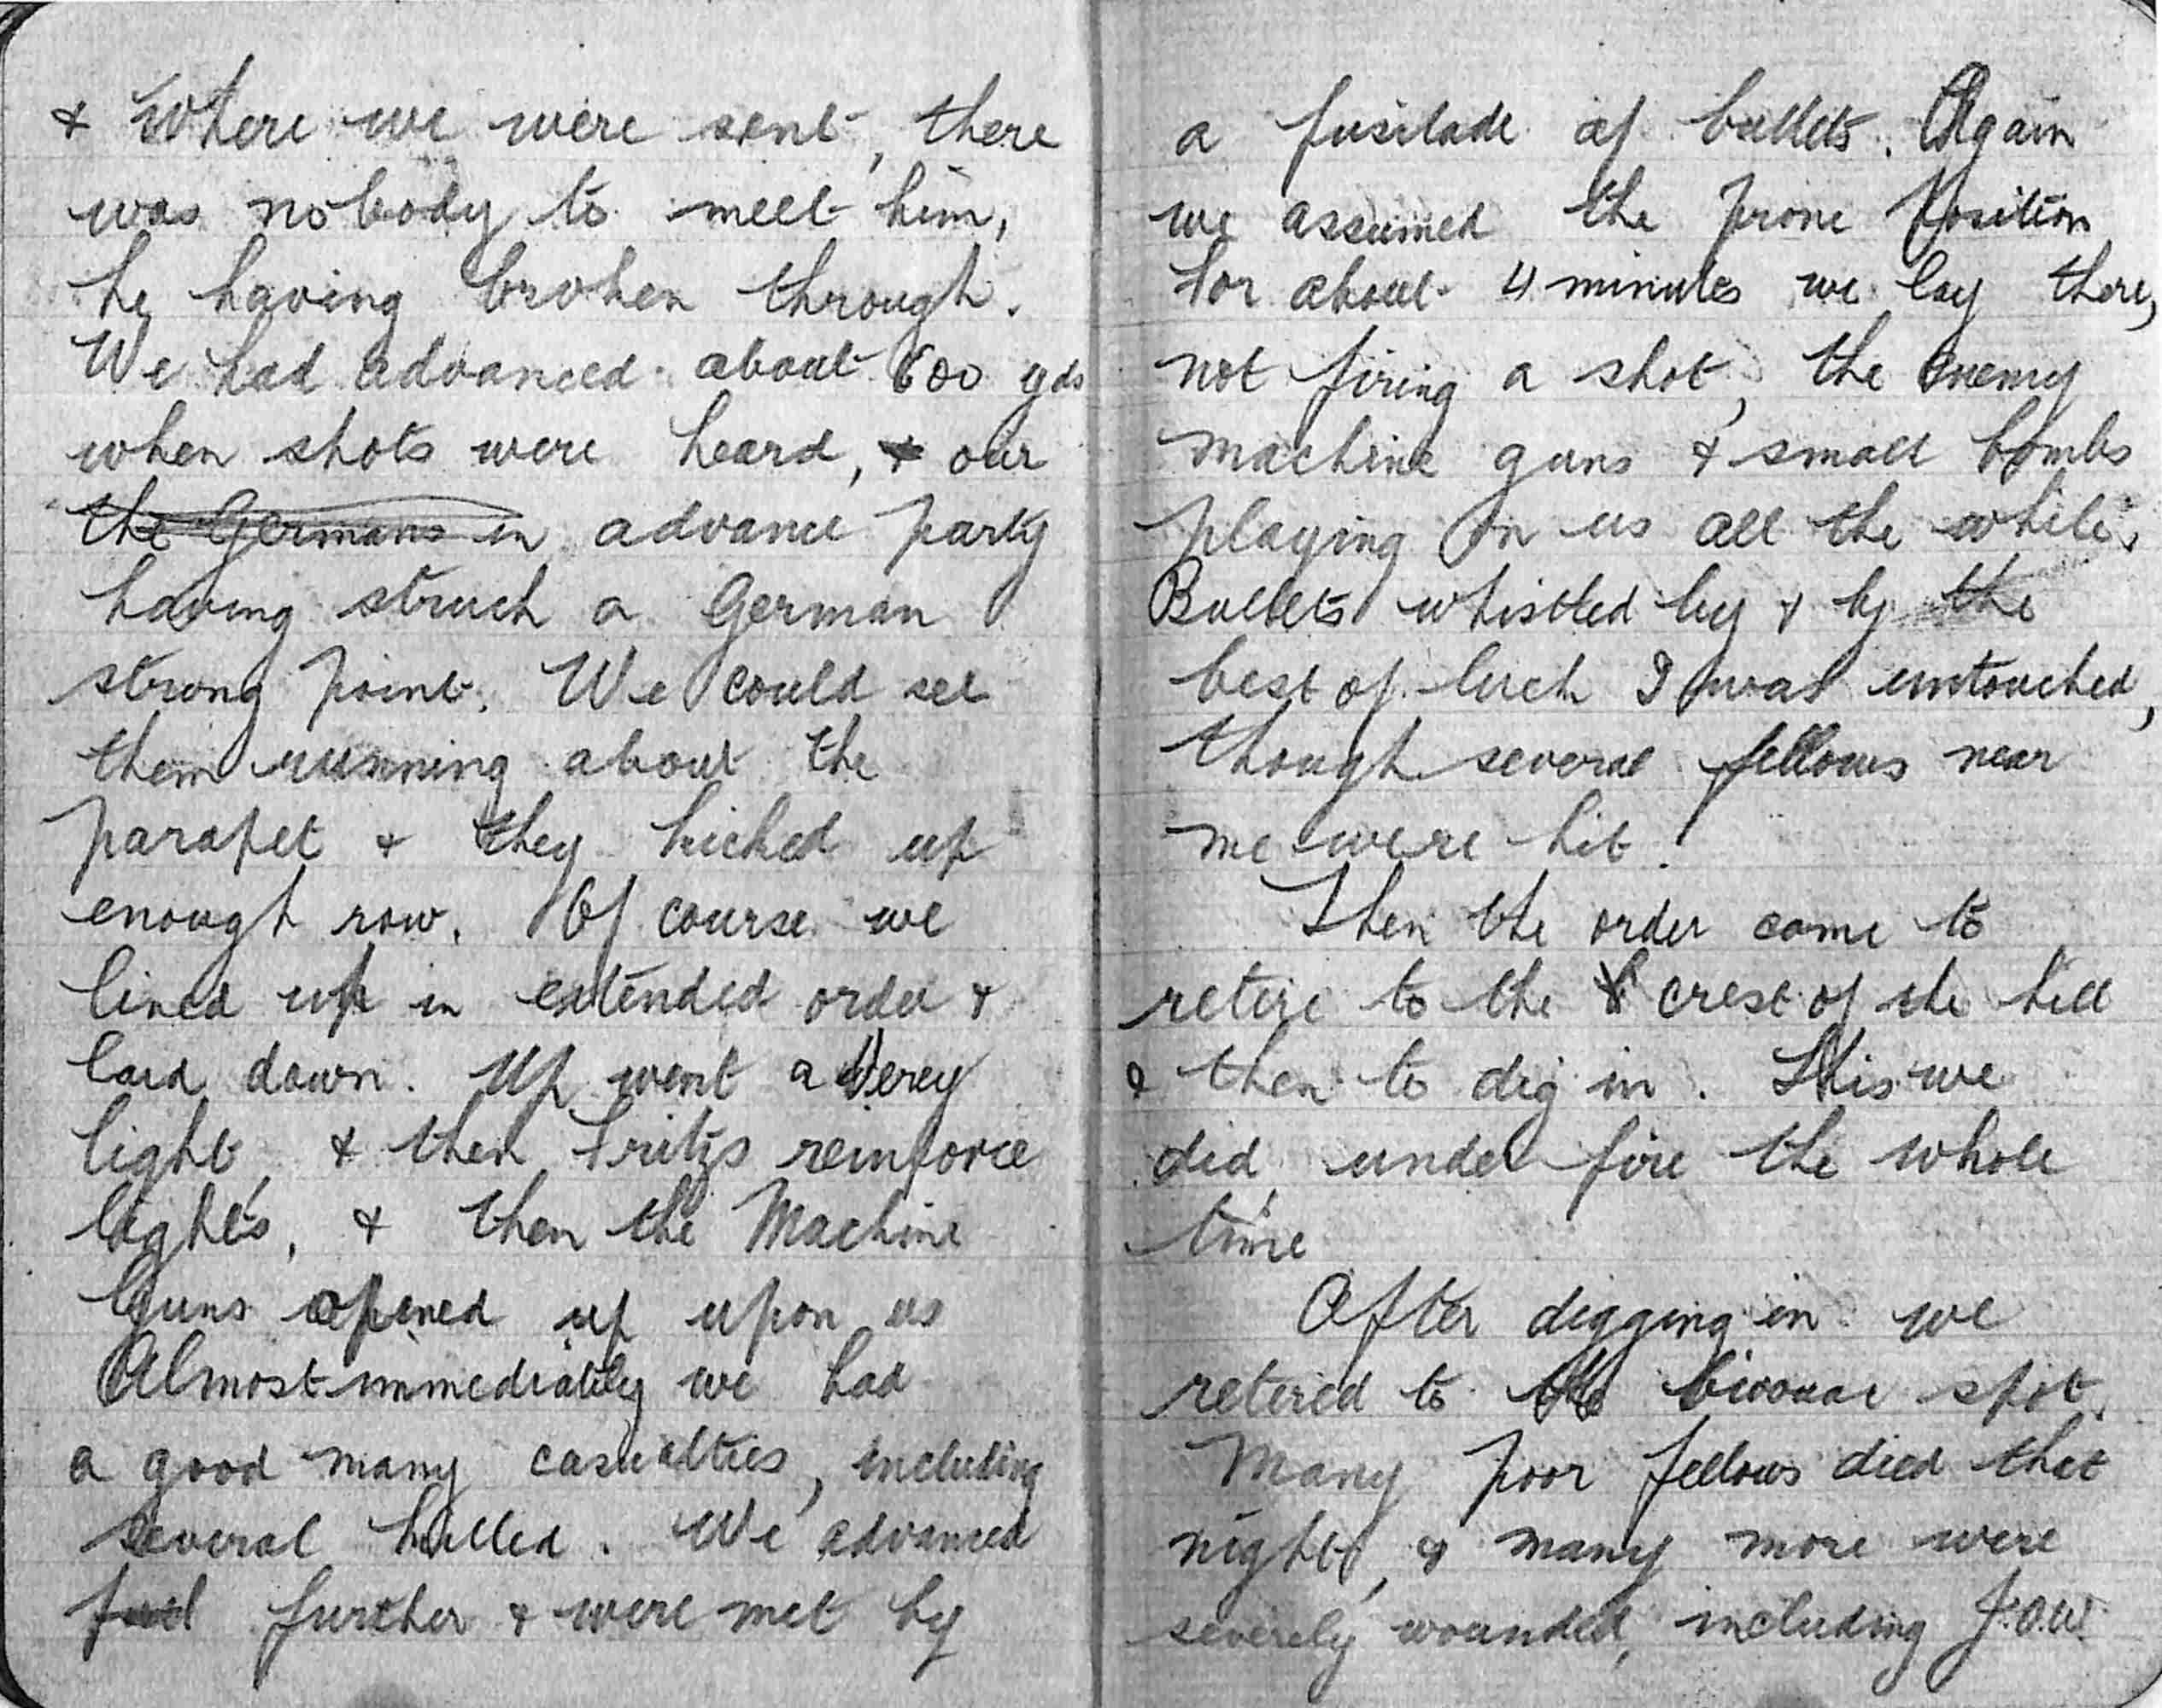 & where we were sent, there
was nobody to meet him,
he having broken through.
We had advanced about 600 yds
when shots were heard, & our
the Germans in advance party
having struck a German
strong point. We could see
them running about the
parapet & they kicked up
enough row. Of course we
lined up in extended order &
laid down. Up went a Verey
light, & then Fritzs reinforce
lights, & then the Machine
Guns opened up upon us
Almost immediately we had
a good many casualties, including
several killed. We advanced
further & were met by
a fusilade of bullets. Again
we assumed the prone position
for about 4 minutes we lay there,
not firing a shot, the enemy
machine guns & small bombs
playing on us all the while.
Bullets whistled by & by the
best of luck I was untouched,
though several fellows near
me were hit.
Then the order came to
retire to the crest of the hill
& then to dig in. This we
did, under fire the whole
time
After digging in we
retired to the bivouac spot.
Many poor fellows died that
night, & many more were
severely wounded, including J.O.W.